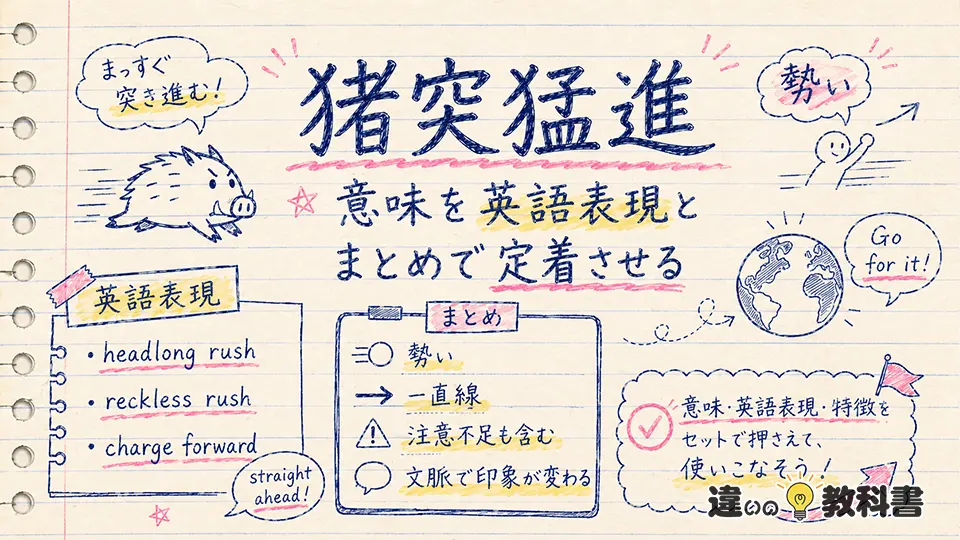 まっすぐ
突き進む!
猪突猛進
勢い
意味を英語表現と
まとめで定着させる
Go
for it!
英語表現
・headlong rush
・reckless rush
・charge forward
straight
ahead!
まとめ
勢い
一直線
注意不足も含む
文脈で印象が変わる
意味・英語表現・特徴を
セットで押さえて、
使いこなそう!
違いの教科書